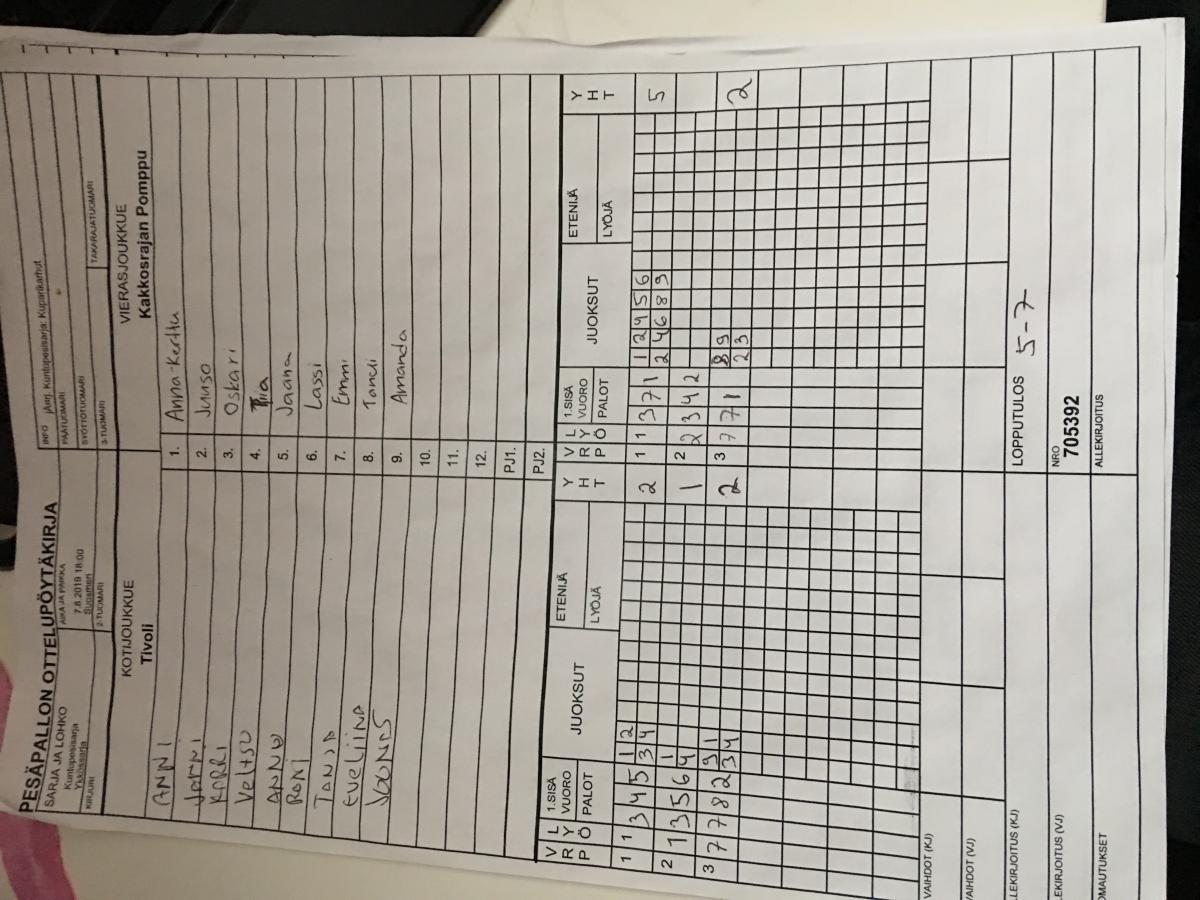 PESÄPALLON OTTELUPÖYTÄKIRJA
SARJA JA LOHKO
Kuntopesisarja
Ykkössarja
AIKA JA PAIKKA
7.8.2019 18:00
Suosmeri
INFO jÄrrj. Kuntopesisarja: Kuparikarhut
PÄÄTUOMARI
SYÖTTÖTUOMARI
KIRJURI
2-TUOMARI
3-TUOMARI
TAKARAJATUOMARI
KOTIJOUKKUE
Tivoli
VIERASJOUKKUE
Kakkosrajan Pomppu
ANNI
1. Anna-Kerttu
2. Juuso
KARRI
3. Oskari
4.
5. Jaana
6. Lassi
TANJA
7. Emmi
EVELIINA
8.
9. Amanda
10.
11.
12.
PJ1.
PJ2.
V R P L Y Ö 1.SISÄ VUORO PALOT JUOKSUT ETENIJÄ LYÖJÄ Y H T V R P L Y Ö 1.SISÄ VUORO PALOT JUOKSUT ETENIJÄ LYÖJÄ Y H T
1 1 3 4 5 1 2 2 1 1 3 7 1 1 2 4 5 6 5
3 4 2 4 6 8 9
2 1 3 5 6 1 1 2 2 3 4 2
4
3 7 7 8 2 9 1 2 3 7 7 1 8 9 2
3 4 2 3
VAIHDOT (KJ)
VAIHDOT (VJ)
LLEKIRJOITUS (KJ)
LOPPUTULOS 5-7
LEKIRJOITUS (VJ)
NRO
705392
OMAUTUKSET
ALLEKIRJOITUS